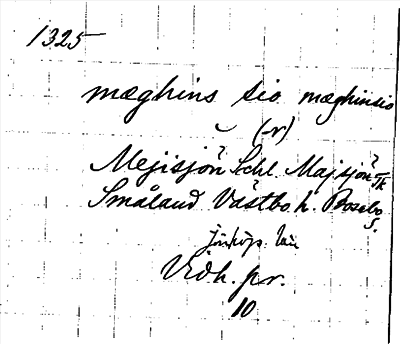 1325
mæghins sio mæghinsio
(-r)
Mejisjön? Schl. Majsjön? TK
Småland Västbo h. Bosebo
s.
Jönköp. län
Vidh. pr.
10